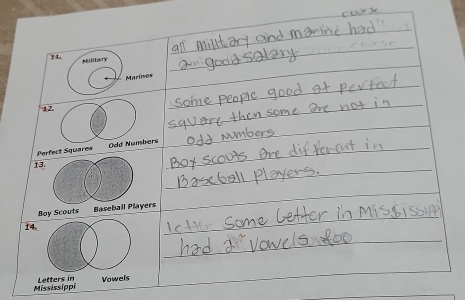 curse
11.
Military
Marines
all military and marine had
a good salary
12.
Perfect Squares
Odd Numbers
some people good at perfect
square then some are not in
odd numbers
13.
Boy Scouts
Baseball Players
Boy scouts are different in
Baseball players.
14.
Letters in
Mississippi
Vowels
some letter in Mississippi
had a vowels too